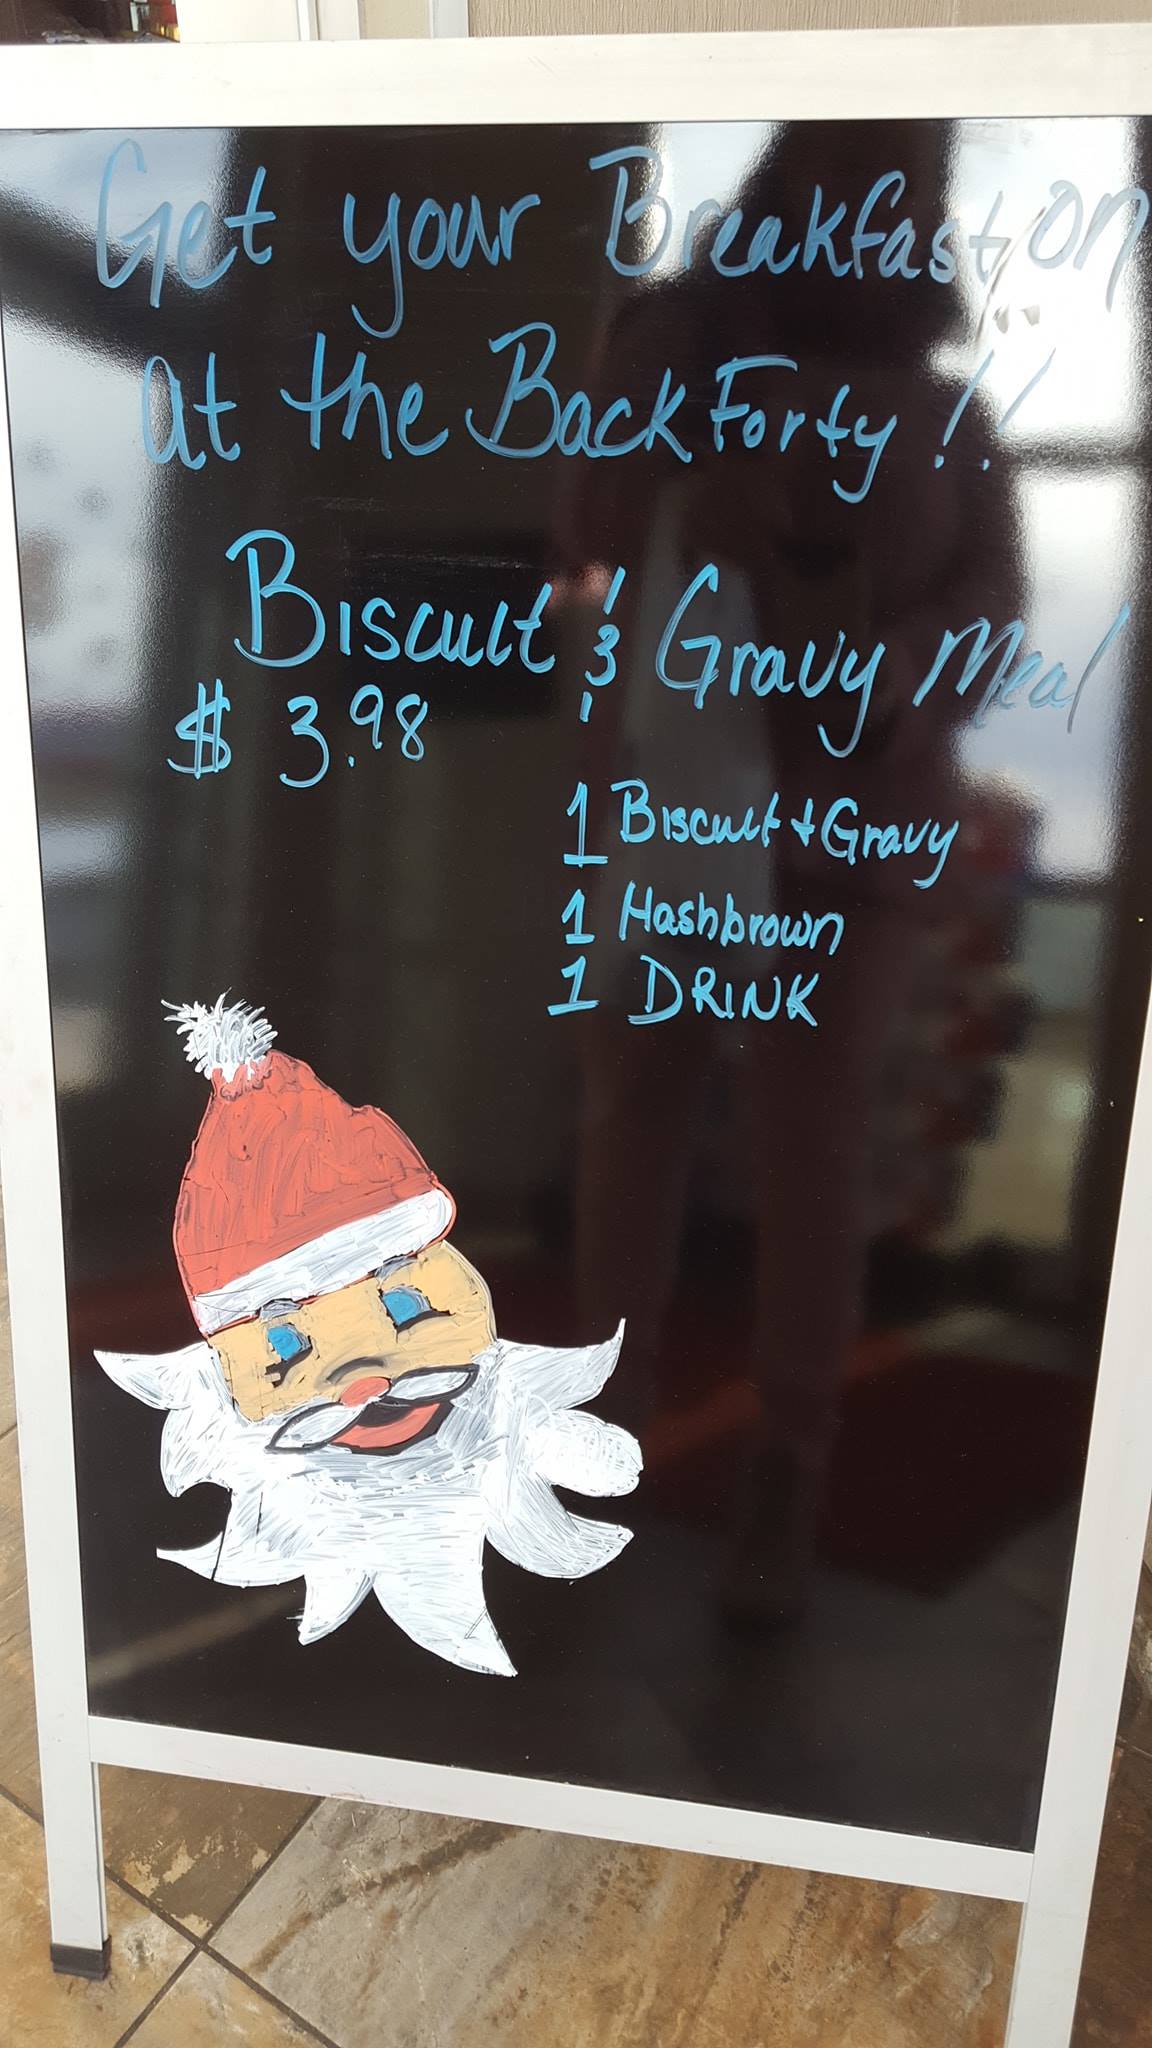 Get your Breakfast on
at the Back Forty!!
Biscuit & Gravy Meal
$3.98
1 Biscuit + Gravy
1 Hashbrown
1 DRINK